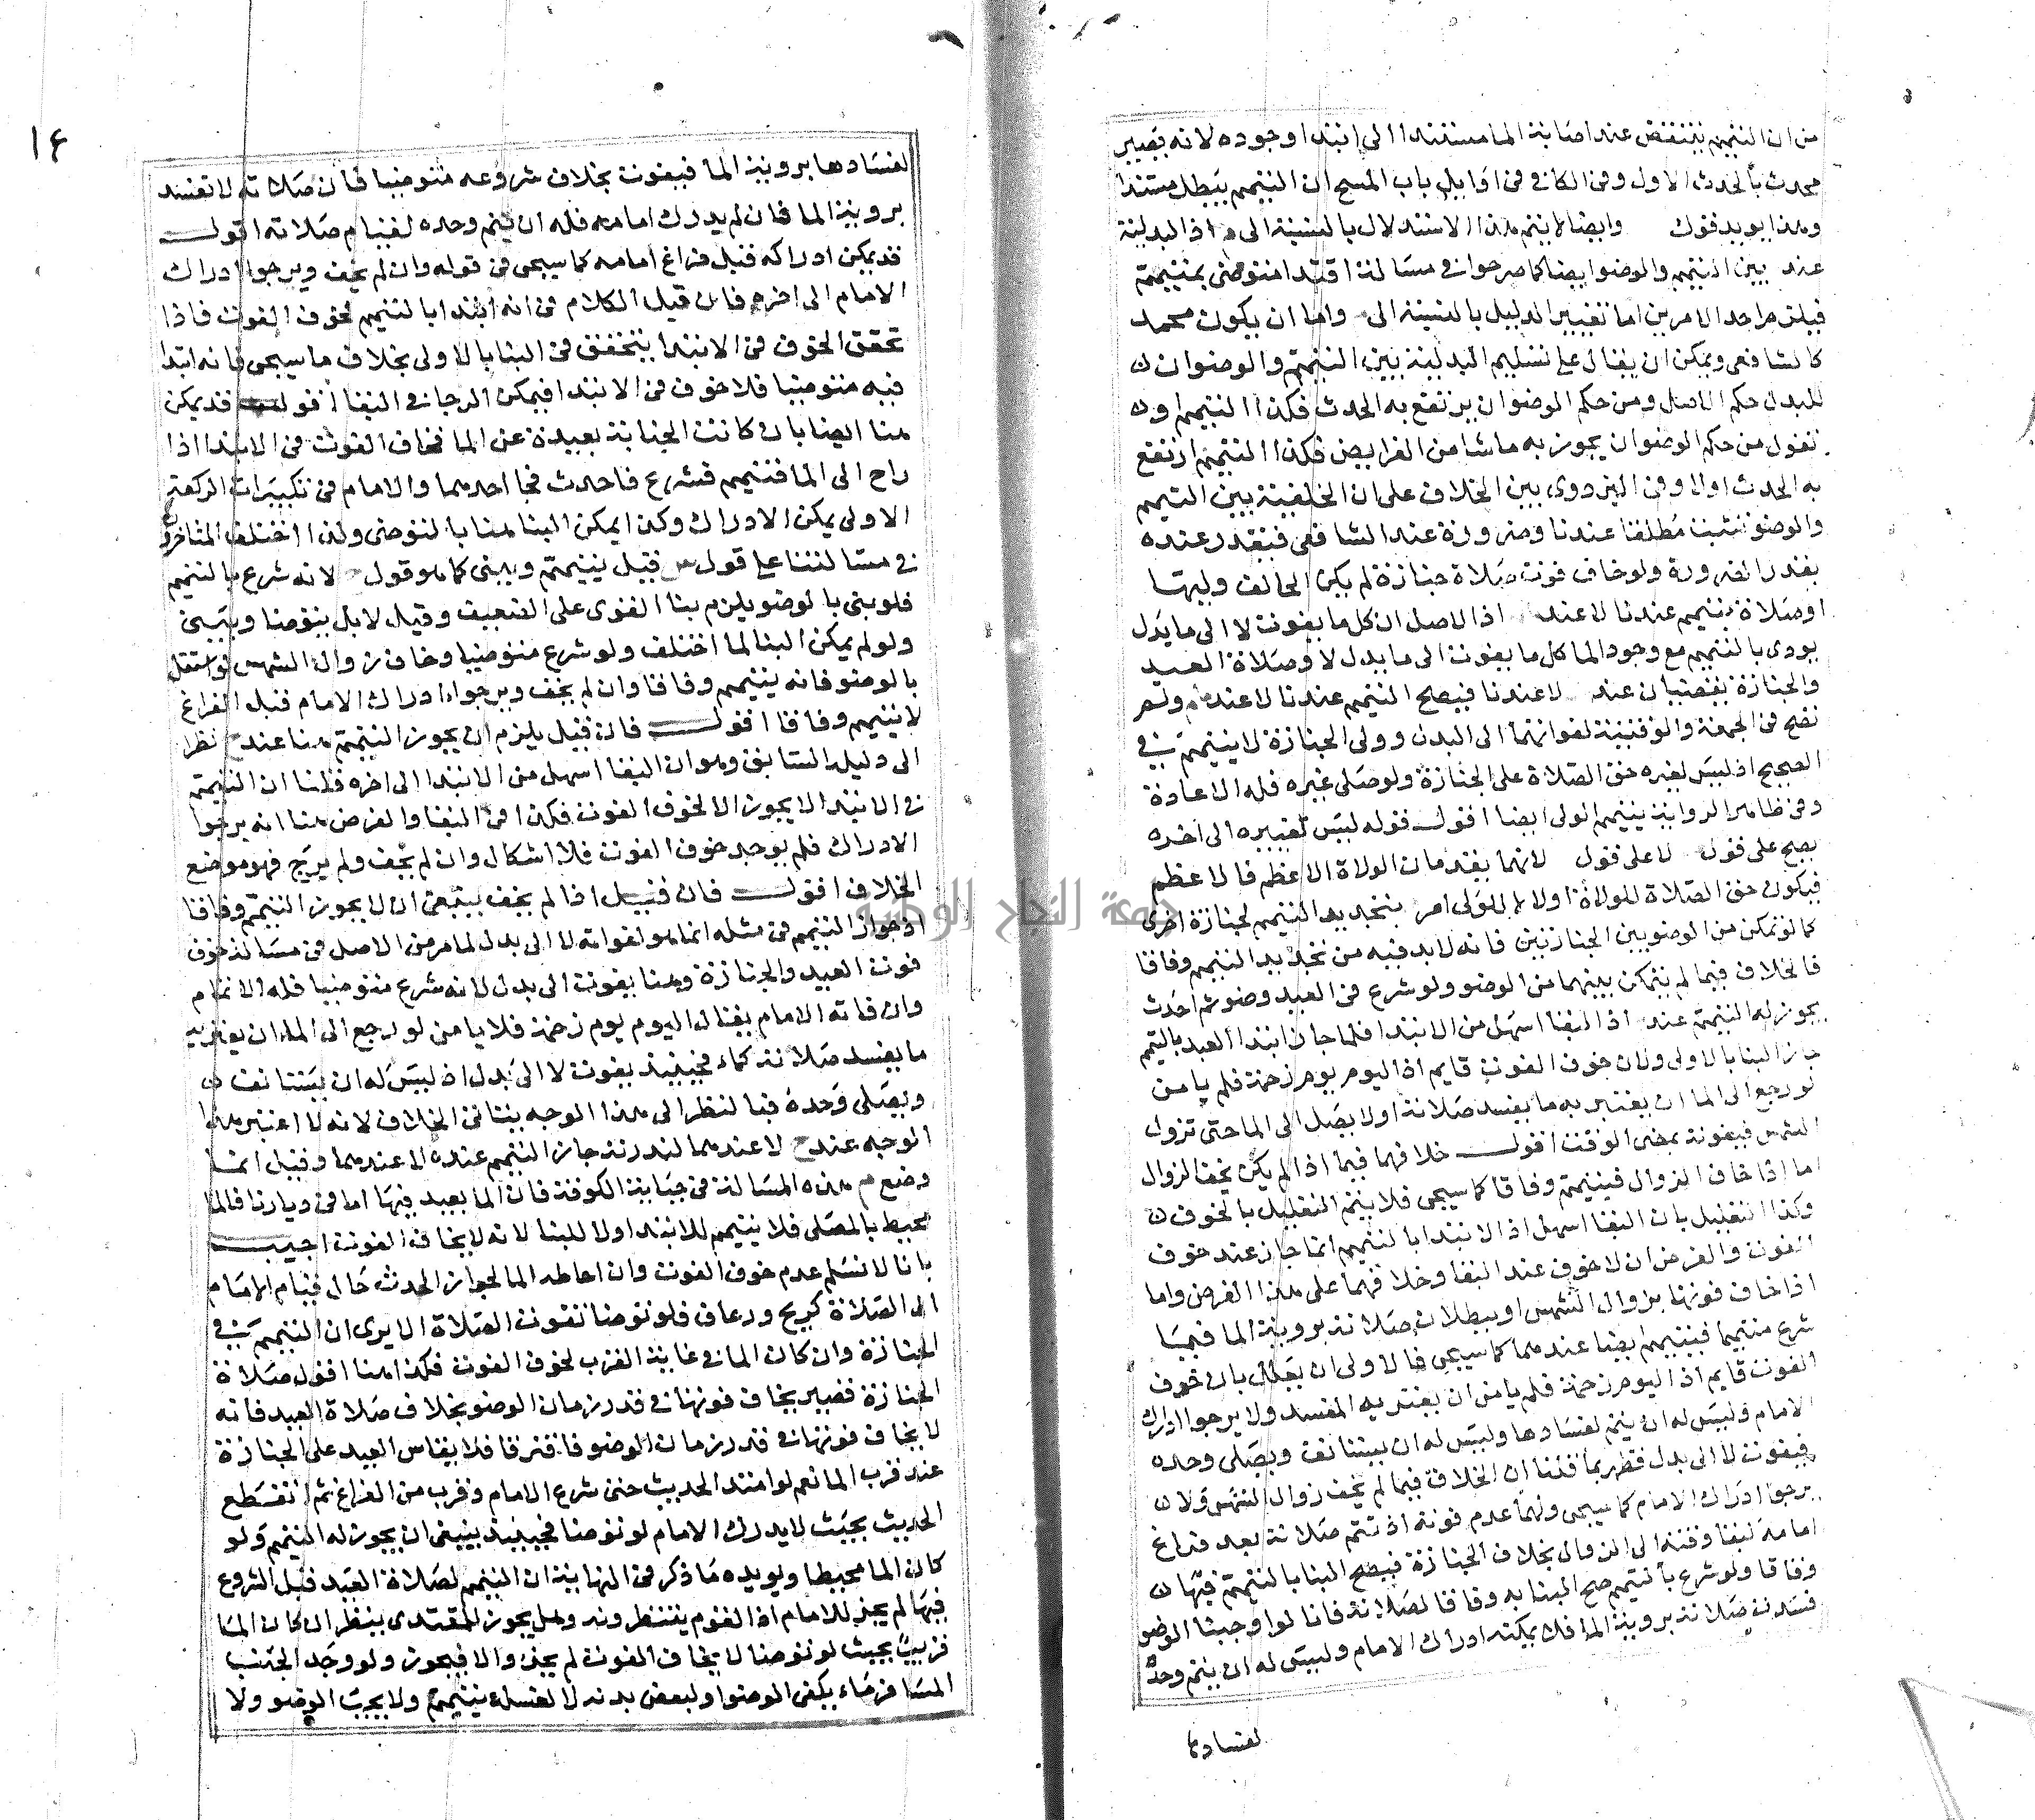 من ان التيمم ينتقض عند اصابة الما مستندا الى ابتدا وجوده لانه يصير
محدث بالحدث الاول وفى الكافى فى اوايل باب المسح ان التيمم يبطل مستندا
وهذا يويد قول وايضا لا يتم هذا الاستدلال بالنسبة الى م اذ البدلية
عند بين التيمم والوضو ايضا كما صرحوا فى مسالة اقتدا متوضى بمتيمم
فيلزم احد الامرين اما تغيير الدليل بالنسبة الى واما ان يكون محمد
كالشافعى ويمكن ان يقال على تسليم البدلية بين التيمم والوضو ان
للبدل حكم الاصل ومن حكم الوضو ان يرتفع به الحدث فكذا التيمم او
نقول من حكم الوضو ان يجوز به ما شا من الفرايض فكذا التيمم ارتفع
به الحدث اولا وفى البزدوى بين الخلاف على ان الخلفية بين التيمم
والوضو تثبت مطلقا عندنا وضرورة عند الشافعى فيقدر عنده
بقدر الضرورة ولو خاف فوت صلاة جنازة لم يكن الخائف وليها
او صلاة يتيمم عندنا لا عند اذ الاصل ان كل ما يفوت لا الى ما يدل
يودى بالتيمم مع وجود الما كل ما يفوت الى ما يدل لا وصلاة العيد
والجنازة يقضيان عند لا عندنا فيصح التيمم عندنا لا عنده ولم
تصح فى الجمعة والوقتية لفواتهما الى البدل وولى الجنازة لا يتيمم فى
الصحيح اذ ليس لغيره حق الصلاة على الجنازة ولو صلى غيره فله الاعادة
وفى ظاهر الرواية يتيمم الولى ايضا اقول قوله ليس لغيره الى اخره
يصح على قول لا على قول لانهما يقدمان الولاة الاعظم فالاعظم
فيكون حق الصلاة للولاة اولا للولى امر بتجديد التيمم لجنازة اخرى
كما لو تمكن من الوضو بين الجنازتين فانه لابد فيه من تجديد التيمم وفاقا
فالخلاف فيما لم يتمكن بينهما من الوضو ولو شرع فى العيد وضو ثم احدث
يجوز له التيمم عند اذ البقا اسهل من الابتدا فلما جاز ابتدا العيد بالتيمم
جاز البنا بالاولى ولان خوف الفوت قايم اذ اليوم يوم زحمة فلم يامن
لو رجع الى الما ان يعتريه ما يفسد صلاته اولا يصل الى الما حتى تزول
الشمس فيفوته بمضى الوقت اقول خلافهما فيما اذا لم يكن يخف الزوال
اما اذا خاف الزوال فيتيمم وفاقا كما سيجى فلا يتم التعليل بالخوف
وكذا التعليل بان البقا اسهل اذ الابتدا بالتيمم انما جاز عند خوف
الفوت والفرض ان لا خوف عند البقا وخلافهما على هذا الفرض واما
اذا خاف فوتها بزوال الشمس او ببطلان صلاته بروية الما فيما
شرع متيمما فيتيمم ايضا عندهما كما سيجى فالاولى ان يعلل بان خوف
الفوت قايم اذ اليوم زحمة فلم يامن ان يعتريه المفسد ولا يرجوا ادراك
الامام وليس له ان يتم لفسادها وليس له ان يستانف ويصلى وحده
فيفوت لا الى بدل فظهر بما قلنا ان الخلاف فيما لم يخف زوال الشمس ولان
يرجوا ادراك الامام كما سيجى ولهما عدم فوته اذ تتم صلاته بعد فراغ
امامه لبقا وقته الى الزوال بخلاف الجنازة فيصح البنا بالتيمم فيها
وفاقا ولو شرع بالتيمم صح البنا به وفاقا لصلاته فانا لو اوجبنا الوضو
فسدت صلاته بروية الما فلا يمكنه ادراك الامام وليس له ان يتم وحده
لفسادها
١٤
لفسادها بروية الما فيفوت بخلاف شروعه متوضيا فان صلاته لا تفسد
بروية الما فان لم يدرك امامه فله ان يتم وحده لقيام صلاته اقول
قد يمكن ادراكه قبل فراغ امامه كما سيجى فى قوله وان لم يخف ويرجوا ادراك
الامام الى اخره فان قيل الكلام فى انه ابتدا بالتيمم لخوف الفوت فاذا
تحقق الخوف فى الابتدا يتحقق فى البنا بالاولى بخلاف ما سيجى فانه ابتدا
فيه متوضيا فلا خوف فى الابتدا فيمكن الرجا فى البقا اقول قد يمكن
هنا ايضا بان كانت الجبانة بعيدة عن الما فخاف الفوت فى الابتدا اذا
راح الى الما فتيمم فشرع فاحدث فجا احدهما والامام فى تكبيرات الركعة
الاولى يمكن الادراك وكذا يمكن البنا هنا بالتوضى ولذا اختلف المتاخرون
فى مسالتنا على قول فقيل يتيمم ويبنى كما هو قول لانه شرع بالتيمم
فلو بنى بالوضو يلزم بنا القوى على الضعيف وقيل لا بل يتوضا ويبنى
ولو لم يمكن البنا لما اختلف ولو شرع متوضيا وخاف زوال الشمس لو اشتغل
بالوضو فانه يتيمم وفاقا وان لم يخف ويرجوا ادراك الامام قبل الفراغ
لا يتيمم وفاقا اقول فان قيل يلزم ان يجوز التيمم هنا عند نظرا
الى دليله السابق وهو ان البقا اسهل من الابتدا الى اخره قلنا ان التيمم
فى الابتدا لا يجوز الا لخوف الفوت فكذا فى البقا والفرض هنا انه يرجوا
الادراك فلم يوجد خوف الفوت فلا اشكال وان لم يخف ولم يرج فهو موضع
الخلاف اقول فان قيل اذا لم يخف ينبغى ان لا يجوز التيمم وفاقا
اذ جواز التيمم فى مثله انما هو لفواته لا الى بدل لما مر من الاصل فى مسالة خوف
فوت العيد والجنازة وهنا يفوت الى بدل لانه شرع متوضيا فله الاتمام
وان فاته الامام يقال اليوم يوم زحمة فلا يامن لو رجع الى الما ان يعتريه
ما يفسد صلاته كما فحينئذ يفوت لا الى بدل اذ ليس له ان يستانف
ويصلى وحده فبالنظر الى هذا الوجه يتاتى الخلاف لانه لا اعتبر هذا
الوجه عند ح لا عندهما لندرته جاز التيمم عنده لا عندهما وقيل انما
وضع م هذه المسالة فى جبانة الكوفة فان الما بعيد فيها اما فى ديارنا فالما
محيط بالمصلى فلا يتيمم للابتدا ولا للبنا لانه لا يخاف الفوت اجيب
بانا لا نسلم عدم خوف الفوت وان احاطه الما لجواز الحدث حال قيام الامام
الى الصلاة كريح ورعاف فلو توضا تفوت الصلاة الا يرى ان التيمم فى
الجنازة وان كان الما فى غاية القرب لخوف الفوت فكذا هنا اقول صلاة
الجنازة قصير يخاف فوتها فى قدر زمان الوضو بخلاف صلاة العيد فانه
لا يخاف فوتها فى قدر زمان الوضو فافترقا فلا يقاس العيد على الجنازة
عند قرب الما نعم لو امتد الحديث حتى شرع الامام وقرب من الفراغ ثم انقطع
الحديث بحيث لا يدرك الامام لو توضا فحينئذ ينبغى ان يجوز له التيمم ولو
كان الما محيطا ويويده ما ذكر فى النهاية ان التيمم لصلاة العيد قبل الشروع
فيها لم يجز للامام اذ القوم ينتظرونه وهل يجوز للمقتدى ينظر ان كان الما
قريبا بحيث لو توضا لا يخاف الفوت لم يجز والا فيجوز ولو وجد الجنب
المسافر ماء يكفى الوضو او لبعض بدنه لا لغسله يتيمم ولا يجب الوضو ولا
جامعة النجاح الوطنية